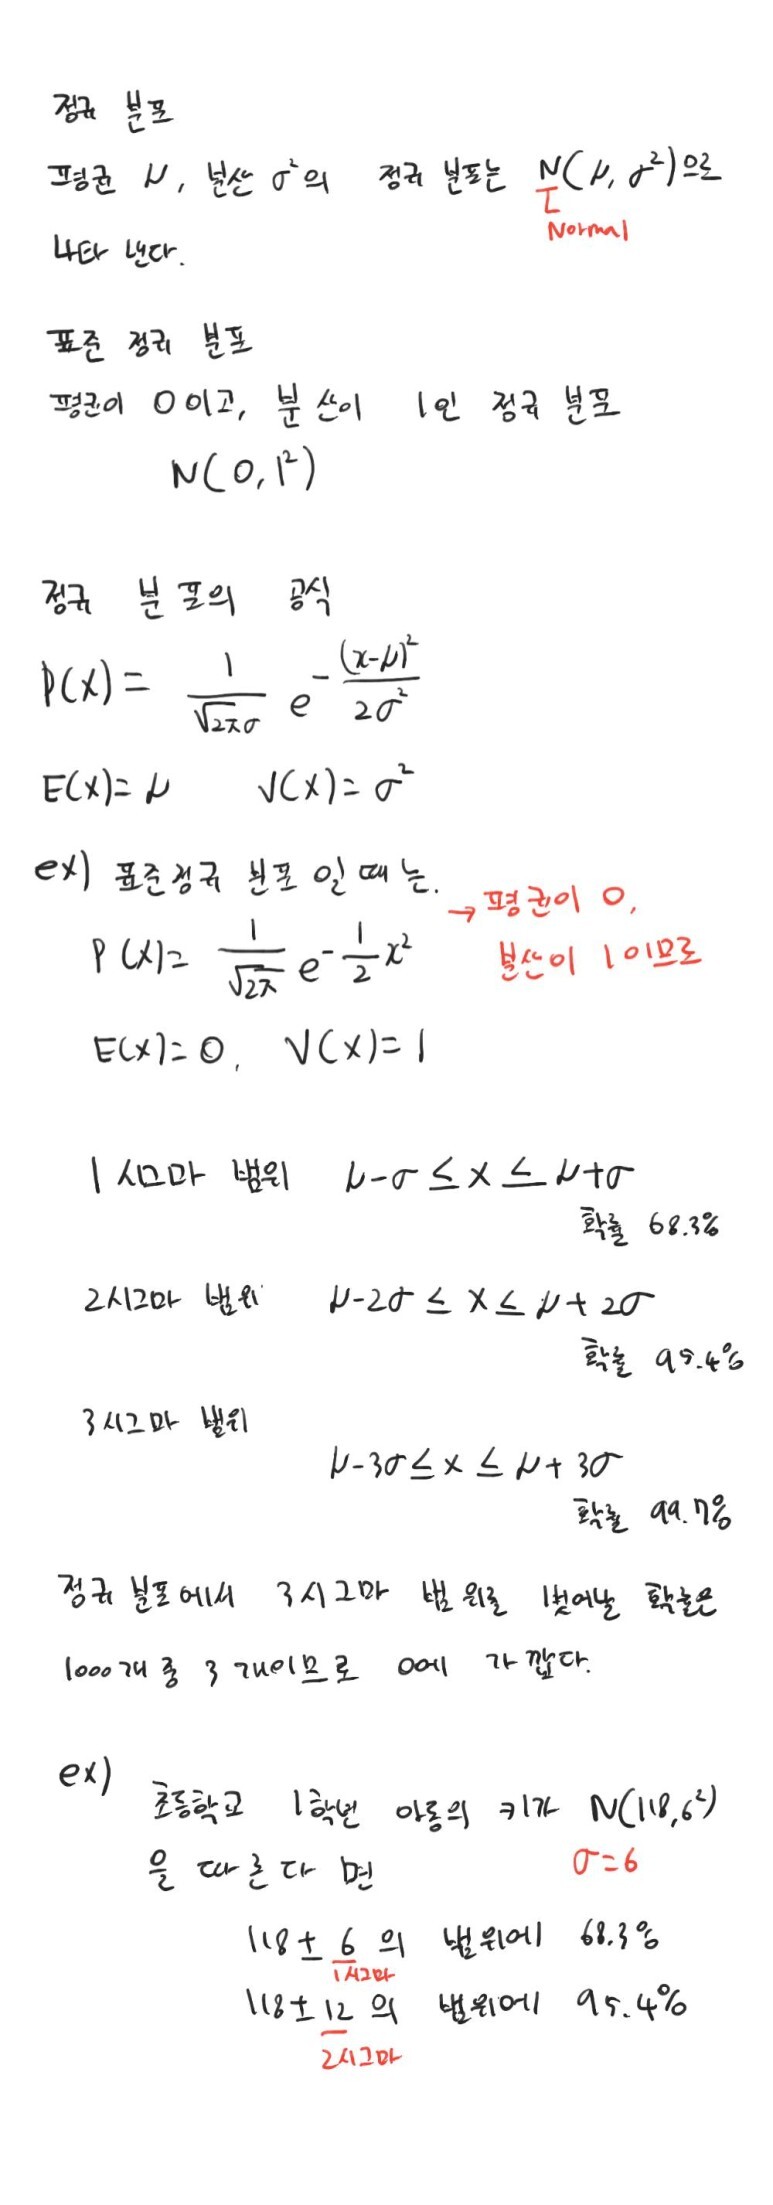 정규 분포
평균 μ, 분산 σ²의 정규 분포는 N(μ, σ²)으로
Normal
나타 낸다.
표준 정규 분포
평균이 0이고, 분산이 1인 정규 분포
N(0, 1²)
정규 분포의 공식
P(X) = 1/(√2πσ) e^-(x-μ)²/2σ²
E(X)=μ V(X)=σ²
ex) 표준정규 분포 일 때는.
→ 평균이 0,
분산이 1이므로
P(X)= 1/√2π e^-1/2 x²
E(X)=0, V(X)=1
1시그마 범위 μ-σ ≤ X ≤ μ+σ
확률 68.3%
2시그마 범위 μ-2σ ≤ X ≤ μ+2σ
확률 95.4%
3시그마 범위
μ-3σ ≤ X ≤ μ+3σ
확률 99.7%
정규 분포에서 3시그마 범위를 벗어날 확률은
1000개 중 3개이므로 0에 가깝다.
ex)
초등학교 1학년 아동의 키가 N(118,6²)
을 따른다면
σ=6
118±6의 범위에 68.3%
1시그마
118±12의 범위에 95.4%
2시그마